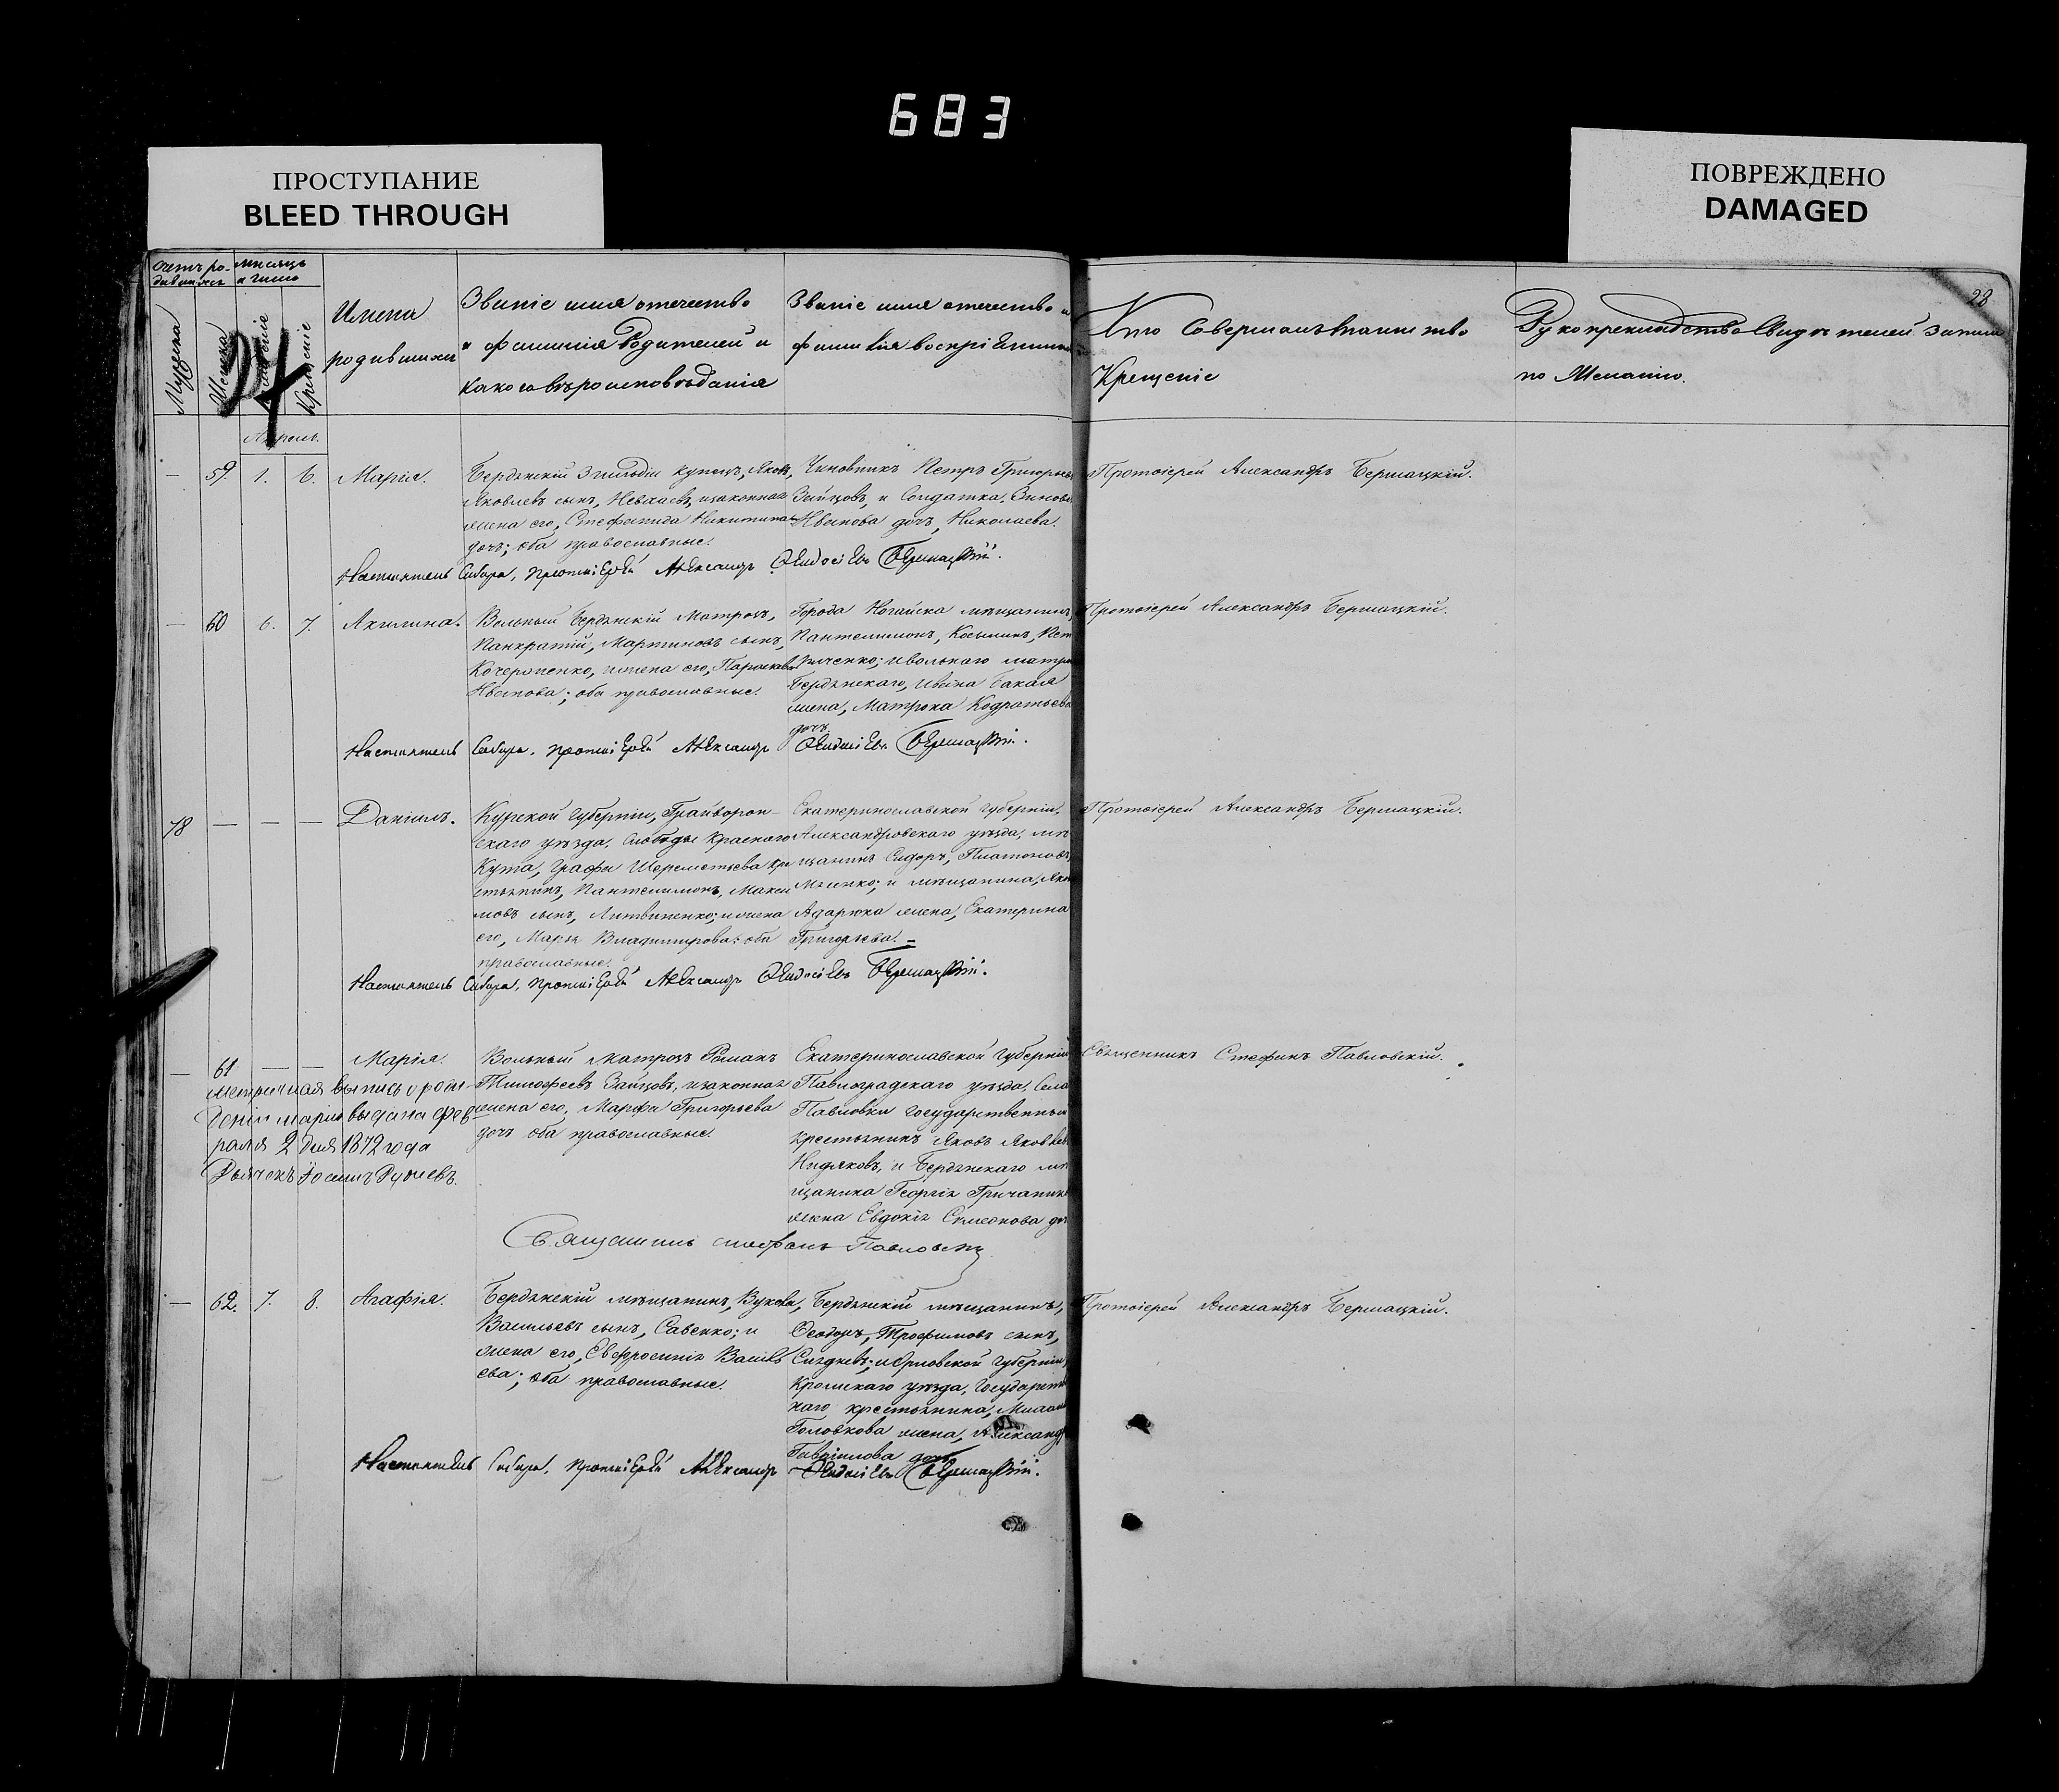 683
ПРОСТУПАНИЕ
BLEED THROUGH
ПОВРЕЖДЕНО
DAMAGED
28
Счетъ ро-
дившихся
мѣсяцъ
и число
Мужска
Женска
Крещеніе
Имена
родившихся
Званіе имя отечество
и фамилія Родителей и
какого вѣроисповѣданія
Званіе имя отечество и
фамилія воспріемник
Кто Совершалъ таинство
Крещеніе
Рукоприкладство Свидѣтелей записи
по желанію.
Апрель.
— 59. 1. 6. Марія.
Бердянскій 3 гильдіи купецъ, Яковъ,
Яковлевъ сынъ, и законная
жена его, Стефанида Никитина
дочь; оба православные.
Чиновникъ Петръ Григорьев
Зайцовъ, и Солдатка,
Иванова дочь, Николаева.
Протоіерей Александръ Бершацкій.
Настоятель Собора, Протоіерей Александръ Ѳеодосіевъ Бершацкій.
— 60 6. 7. Акилина.
Вольный Бердянскій Матросъ,
Панкратій, Мартиновъ сынъ,
и жена его, Параскева
Иванова; оба православные.
Города Ногайска мѣщанинъ
Пантелимонъ, Косминъ,
и вольнаго матро
Бердянскаго, Ивана
жена, Матрона Кодратьева
дочь
Протоіерей Александръ Бершацкій.
Настоятель Собора, Протоіерей Александръ Ѳеодосіевъ Бершацкій.
78 — — — Даніилъ.
Курской Губерніи, Грайворон-
скаго уѣзда, Слободы Краснаго
Кута, Графа Шереметьева кре
стьянинъ, Пантелимонъ, Макси
мовъ сынъ, Литвиненко; и жена
его, Марья Владимирова; оба
православные.
Екатеринославской Губерніи,
Александровскаго уѣзда, мѣ
щанинъ Сидоръ, Платоновъ,
и мѣщанина,
жена, Екатерина
Григорьева.
Протоіерей Александръ Бершацкій.
Настоятель Собора, Протоіерей Александръ Ѳеодосіевъ Бершацкій.
— 61 — — Марія.
Метричная выпись о рож-
деніи Маріи выдана Фев-
раля 2 дня 1872 года
Дьячокъ
Вольный Матросъ Романъ
Тимофеевъ Зайцовъ, и законная
жена его, Марфа Григорьева
дочь оба православные.
Екатеринославской Губерніи
Павлоградскаго уѣзда, Села
Павловки Государственный
крестьянинъ Яковъ Яковлев
и Бердянскаго мѣ
щанина Георгія
жена Евдокія Симеонова до
Священникъ Стефанъ Павловскій.
Священникъ Стефанъ Павловскій
— 62. 7. 8. Агафія.
Бердянскій мѣщанинъ,
Васильевъ сынъ, Савенко; и
жена его, Евфросинія Василь
ева; оба православные.
Бердянскій мѣщанинъ,
Ѳеодоръ, Трофимовъ сынъ,
и Орловской Губерніи,
Кромскаго уѣзда, Государствен
наго крестьянина,
Головкова жена, Александр
Гавріилова дочь
Протоіерей Александръ Бершацкій.
Настоятель Собора, Протоіерей Александръ Ѳеодосіевъ Бершацкій.